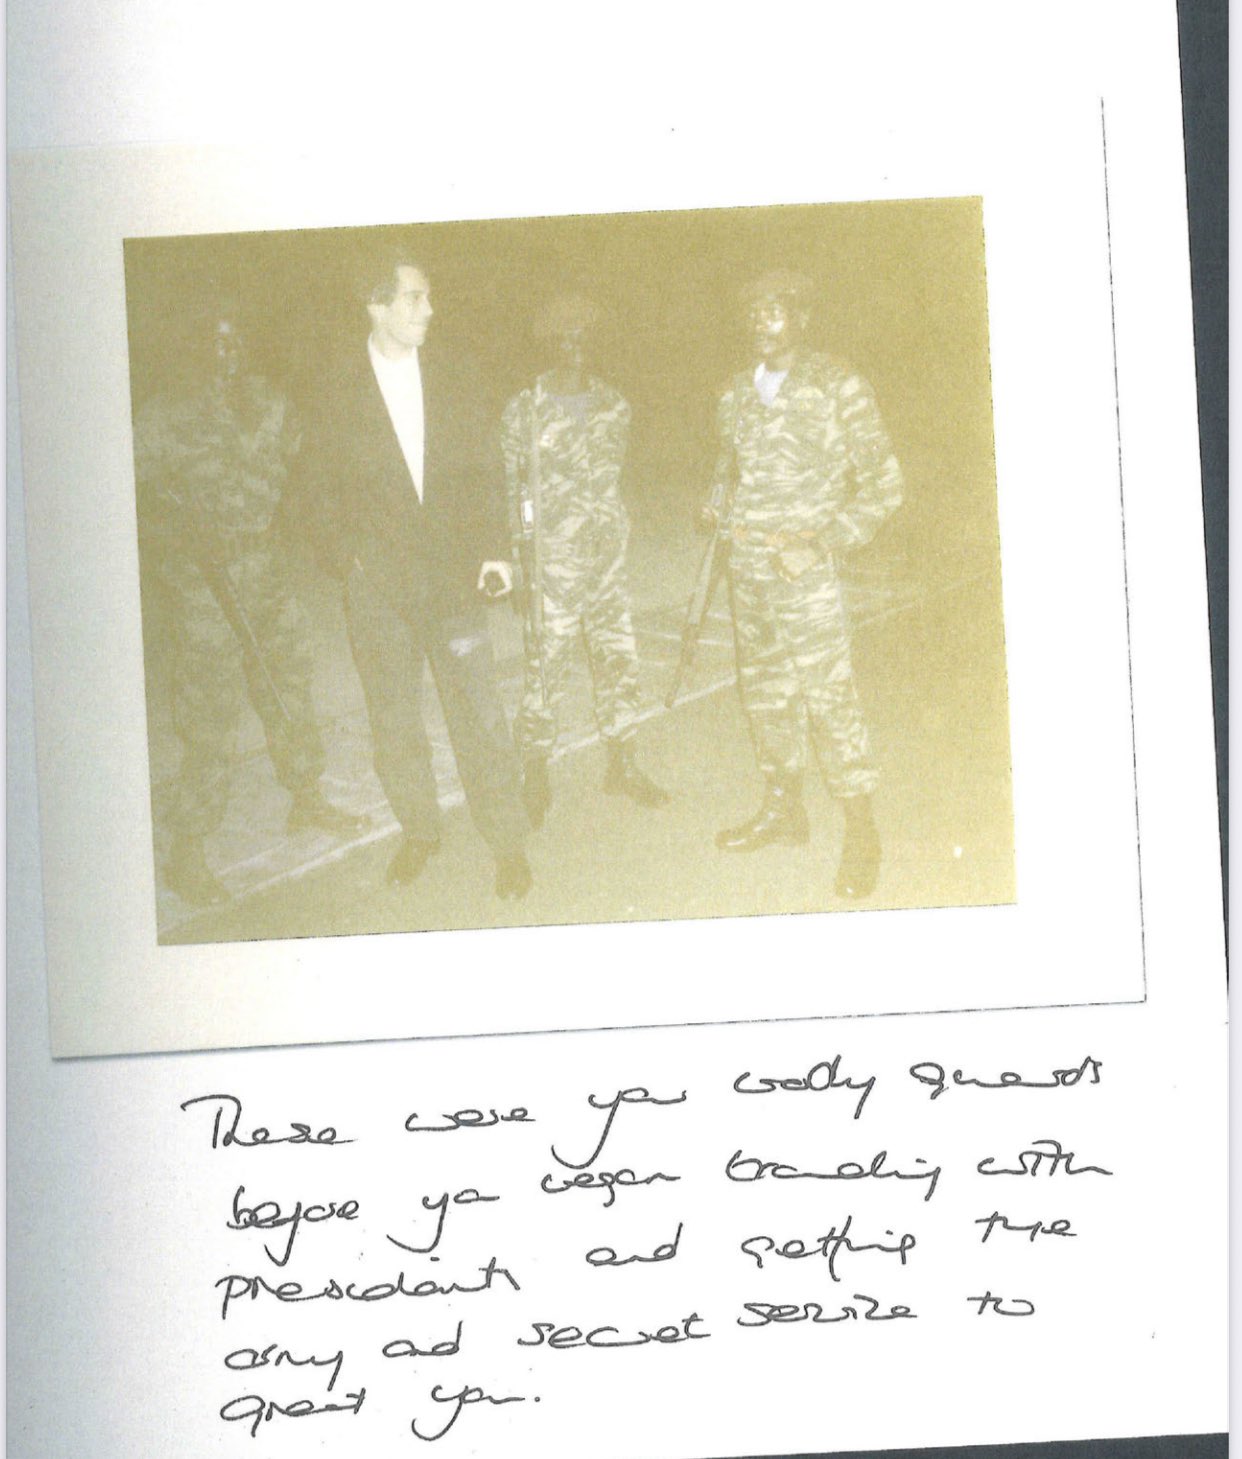 These were your body guards
before you began with
presidents and getting the
army and secret service to
greet you.